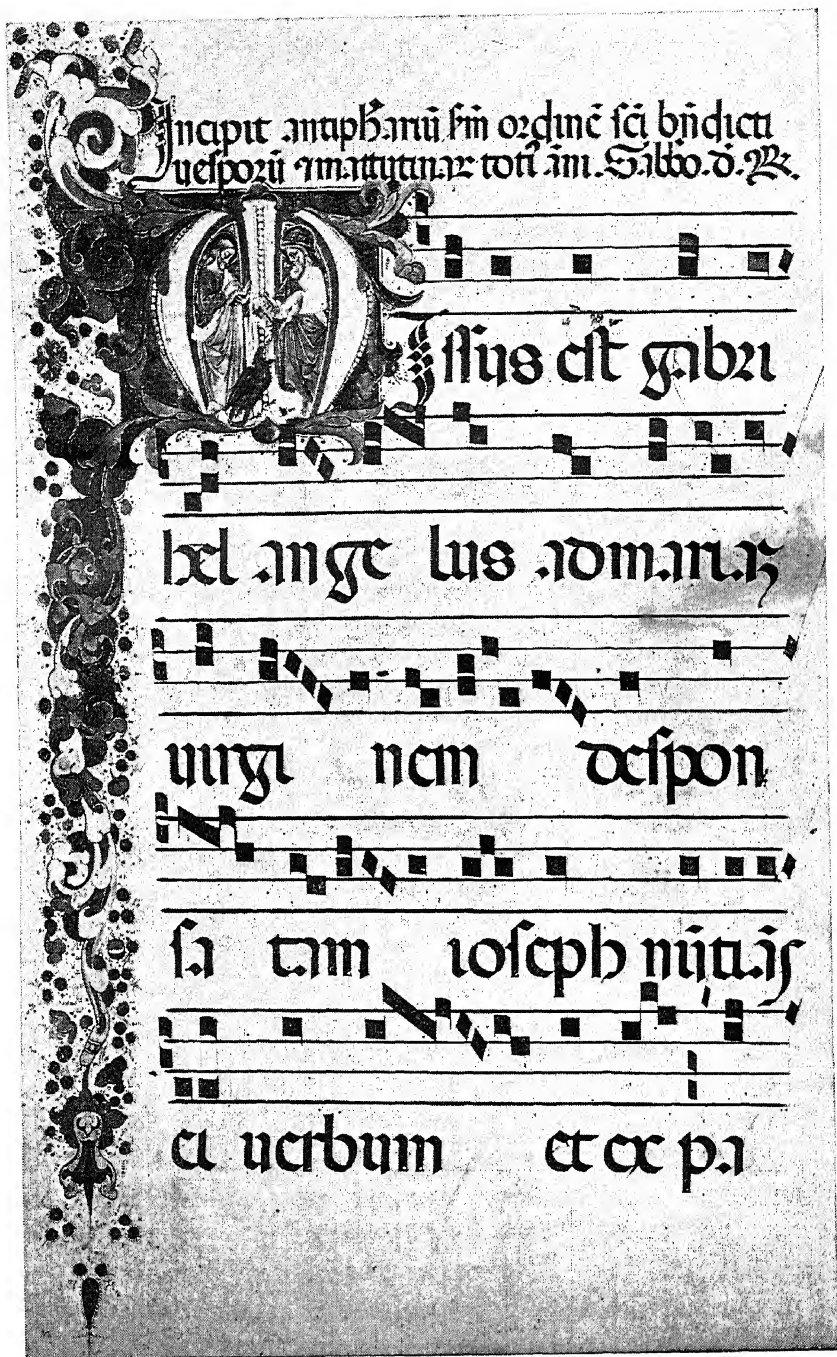 Incipit antiphariū sm ordinē sci bn̄dicti
uesporū ⁊ mattutinaꝝ toti᷒ āni. Sabbo. d. R.
Missus est gabri
hel ange lus ad mariaꝫ
uirgi nem despon
sa tam ioseph nūtiās
ei uerbum et ex pa